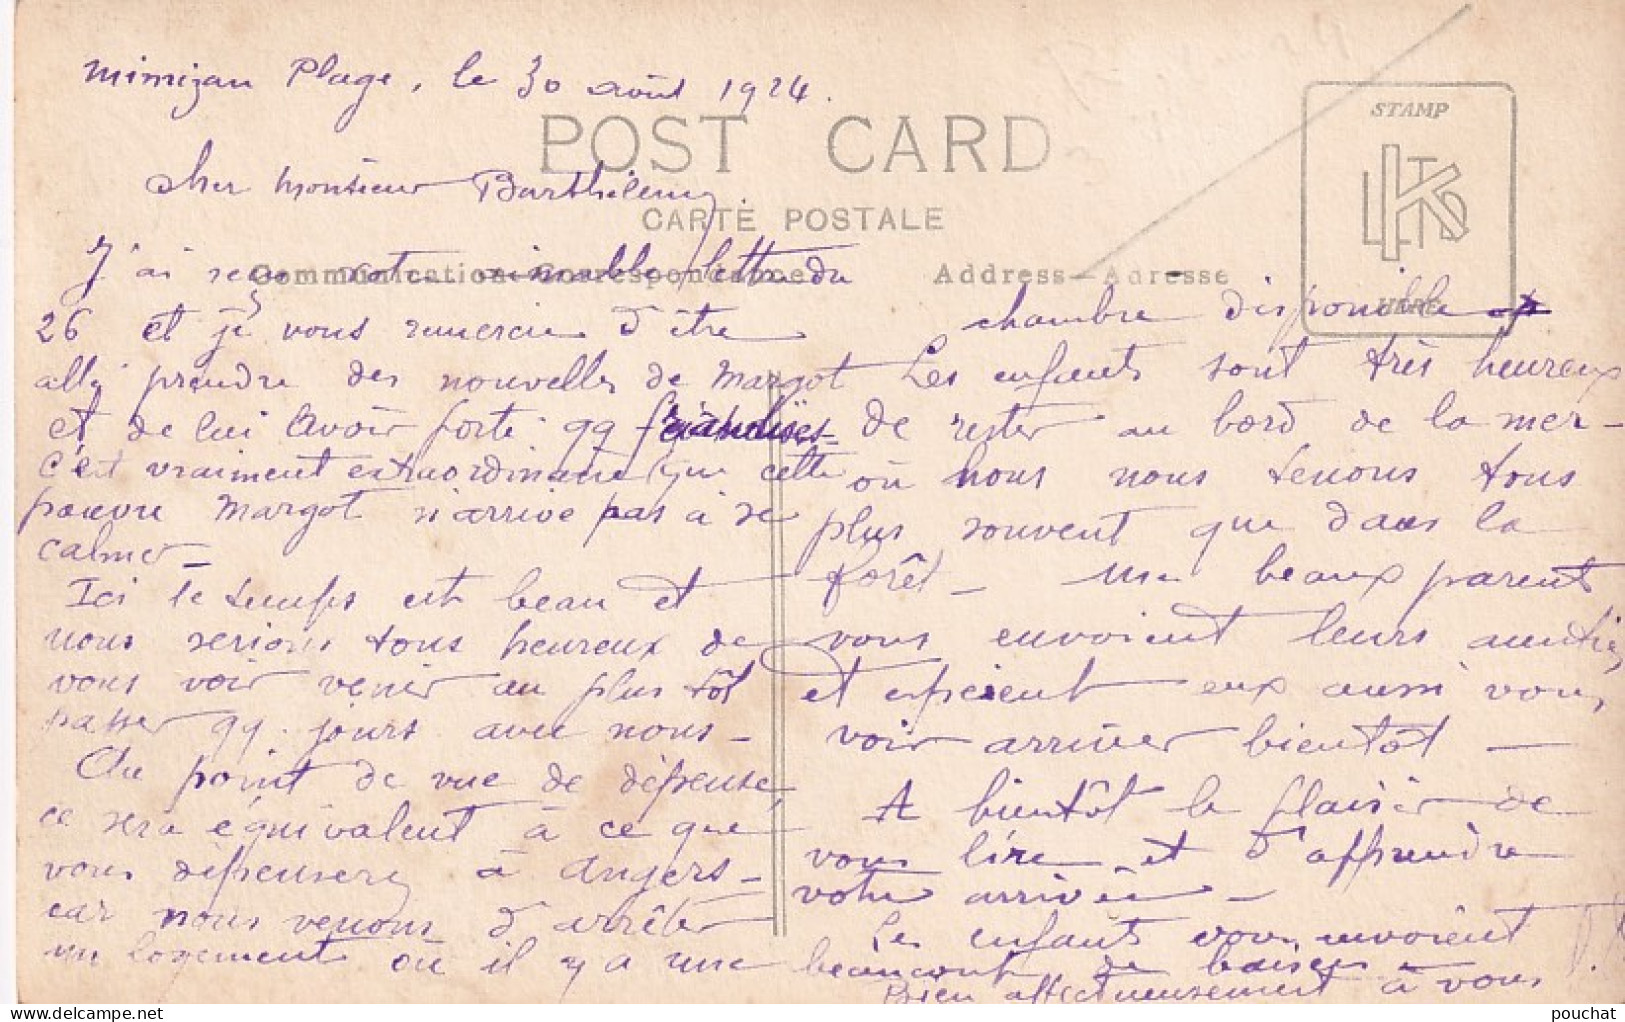 Mimizan Plage, le 30 août 1924.
POST CARD
STAMP
cher Monsieur Barthélemy
CARTE POSTALE
LKTD
Communication-Correspondance
Address-Adresse
HERE
J'ai reçu votre aimable lettre du
26 et je vous remercie d'être
allé prendre des nouvelles de Margot
et de lui avoir porté qq friandises -
C'est vraiment extraordinaire que cette
pauvre Margot n'arrive pas à se
calmer -
Ici le temps est beau et
nous serions tous heureux de
vous voir venir au plus tôt
passer qq. jours avec nous -
Au point de vue de dépense,
ce sera équivalent à ce que
vous dépenserez à Angers -
car nous venons d'arrêter
un logement où il y a une
chambre disponible
Les enfants sont très heureux
de rester au bord de la mer -
où nous nous tenons tous
plus souvent que dans la
forêt - Mes beaux parents
vous envoient leurs amitiés
et espèrent eux aussi vous
voir arriver bientôt -
A bientôt le plaisir de
vous lire et d'apprendre
votre arrivée -
Les enfants vous envoient
beaucoup de baisers -
Bien affectueusement à vous
© pouchat